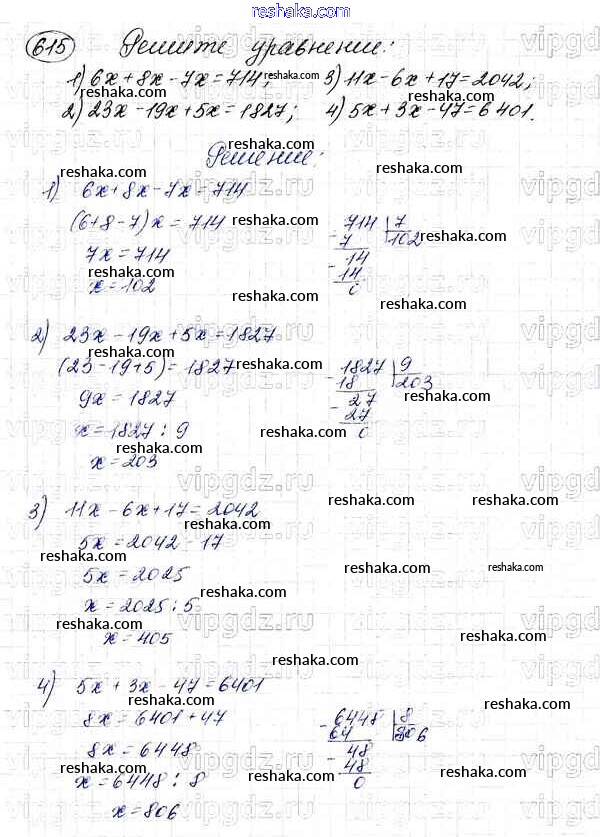 reshaka.com
615 Решите уравнение:
1) 6x + 8x - 7x = 714; reshaka.com 3) 11x - 6x + 17 = 2042;
2) 23x - 19x + 5x = 1827; 4) 5x + 3x - 47 = 6401.
reshaka.com
Решение:
reshaka.com reshaka.com
1) 6x + 8x - 7x = 714
reshaka.com
(6 + 8 - 7)x = 714 714 | 7
- 7 102
reshaka.com
7x = 714 14
- 14
reshaka.com
x = 102 0
reshaka.com
reshaka.com
2) 23x - 19x + 5x = 1827
reshaka.com
(23 - 19 + 5) = 1827 reshaka.com - 1827 | 9
18 203
9x = 1827 27 reshaka.com
- 27
x = 1827 : 9 reshaka.com 0
reshaka.com
x = 203
reshaka.com reshaka.com
3) 11x - 6x + 17 = 2042
reshaka.com
5x = 2042 - 17
reshaka.com
5x = 2025 reshaka.com
reshaka.com
x = 2025 : 5
reshaka.com reshaka.com
x = 405
reshaka.com
4) 5x + 3x - 47 = 6401
reshaka.com
8x = 6401 + 47 - 6448 | 8
64 806
8x = 6448 48
reshaka.com - 48
x = 6448 : 8 0
reshaka.com
x = 806
vipgdz.ru